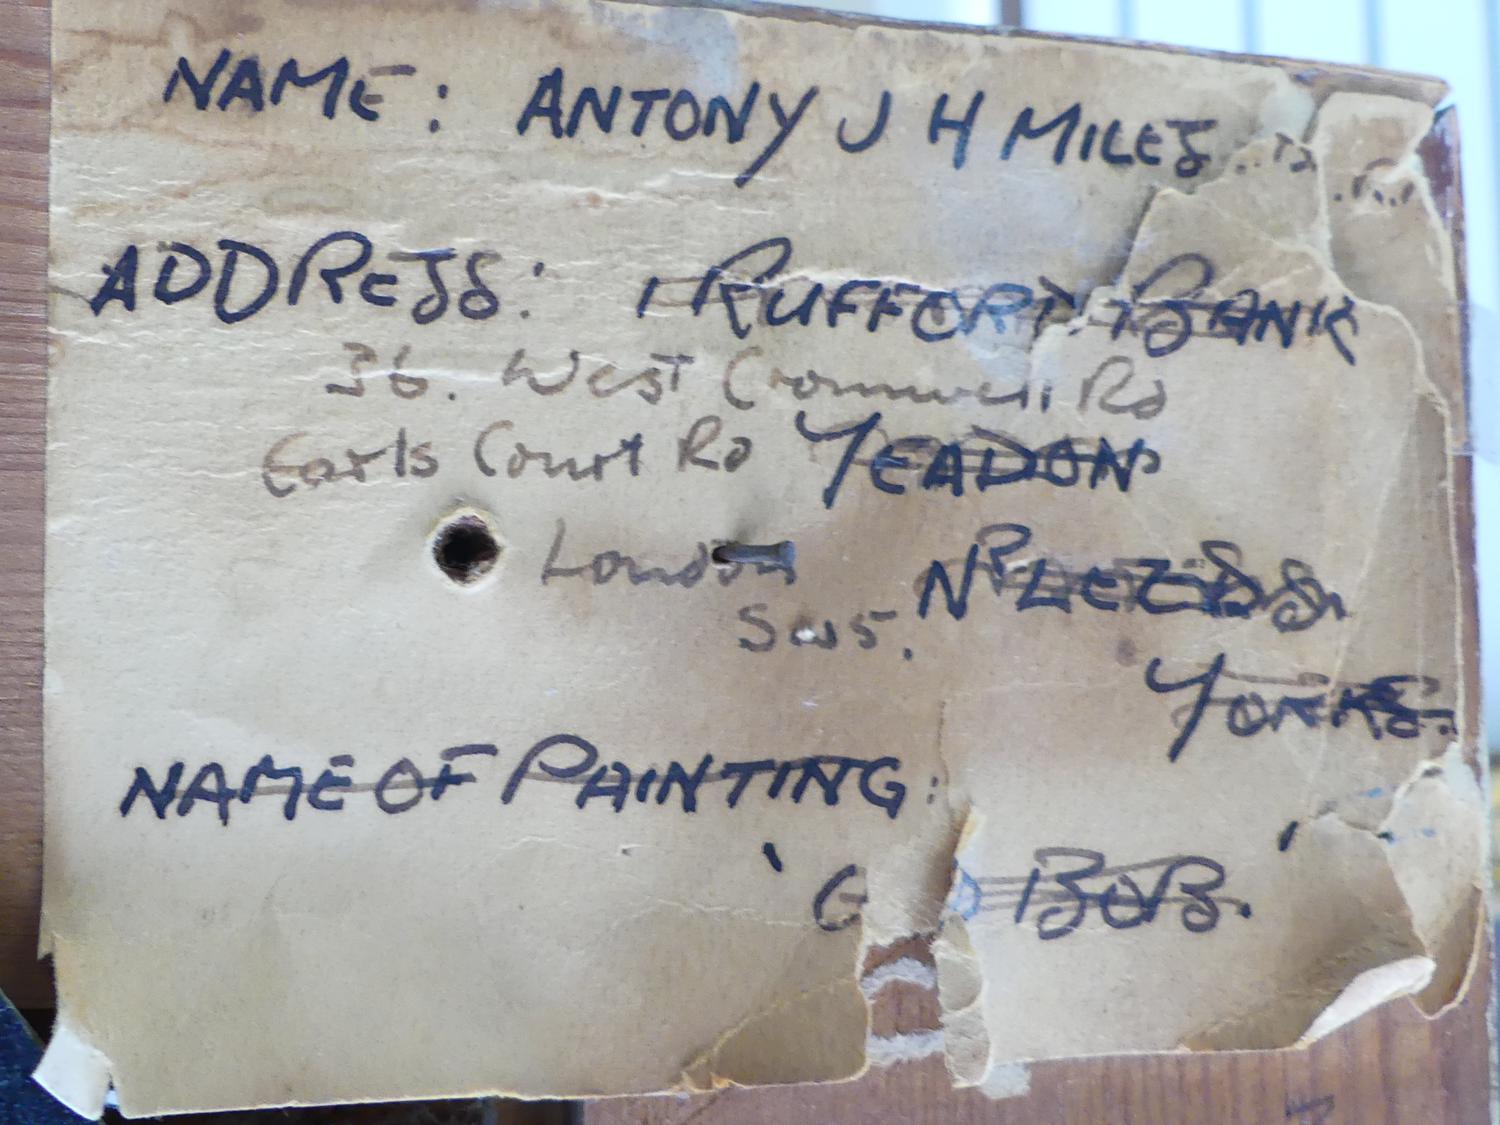 NAME: ANTONY J H MILES
ADDRESS: 1 RUFFORD BANK
36. West Cromwell Rd
Earls Court Rd YEADON
London NR LEEDS
SW5.
YORKS.
NAME OF PAINTING:
' BOB. '